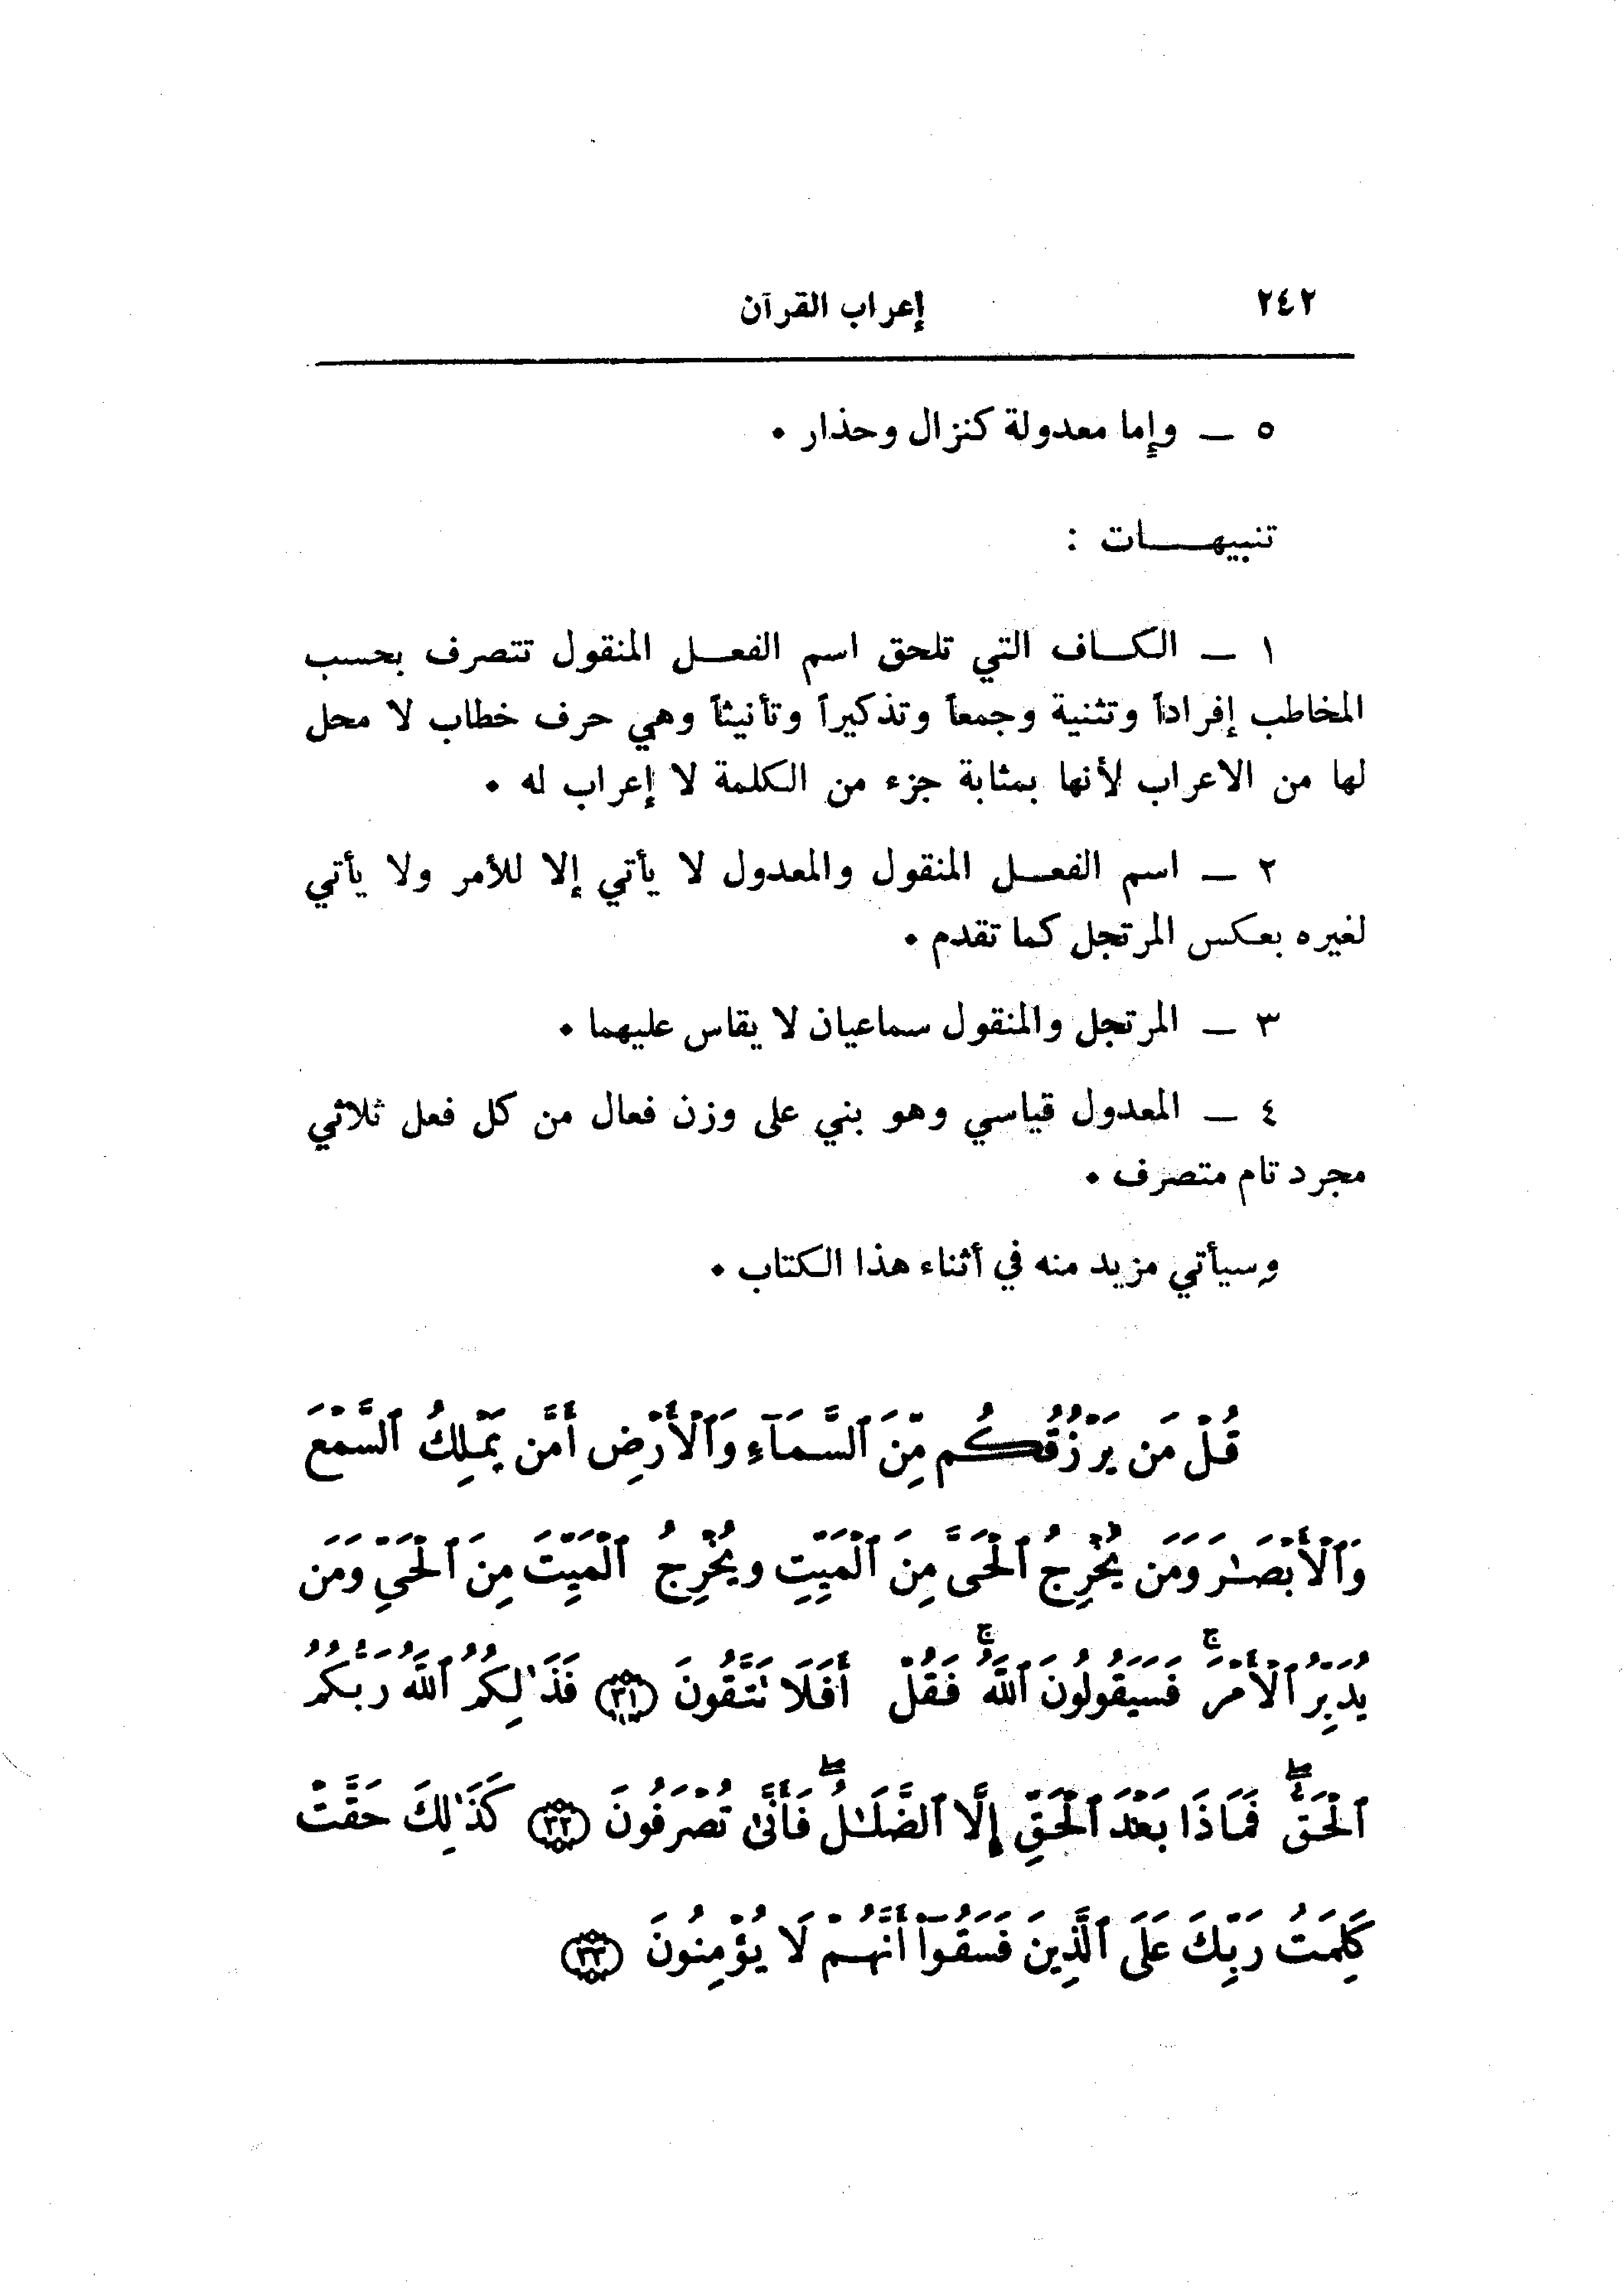 ٢٤٢ إعراب القرآن
٥ ـ وإما معدولة كنزال وحذار .
تنبيهـــات :
١ ـ الكــاف التي تلحق اسم الفعــل المنقول تتصرف بحسب
المخاطب إفراداً وتثنية وجمعاً وتذكيراً وتأنيثاً وهي حرف خطاب لا محل
لها من الاعراب لأنها بمثابة جزء من الكلمة لا إعراب له .
٢ ـ اسم الفعــل المنقول والمعدول لا يأتي إلا للأمر ولا يأتي
لغيره بعكس المرتجل كما تقدم .
٣ ـ المرتجل والمنقول سماعيان لا يقاس عليهما .
٤ ـ المعدول قياسي وهو بني على وزن فعال من كل فعل ثلاثي
مجرد تام متصرف .
وسيأتي مزيد منه في أثناء هذا الكتاب .
قُلْ مَن يَرْزُقُكُم مِّنَ ٱلسَّمَآءِ وَٱلْأَرْضِ أَمَّن يَمْلِكُ ٱلسَّمْعَ
وَٱلْأَبْصَٰرَ وَمَن يُخْرِجُ ٱلْحَىَّ مِنَ ٱلْمَيِّتِ ويُخْرِجُ ٱلْمَيِّتَ مِنَ ٱلْحَىِّ وَمَن
يُدَبِّرُ ٱلْأَمْرَ ۚ فَسَيَقُولُونَ ٱللَّهُ ۚ فَقُلْ أَفَلَا تَتَّقُونَ ﴿٣١﴾ فَذَٰلِكُمُ ٱللَّهُ رَبُّكُمُ
ٱلْحَقُّ ۖ فَمَاذَا بَعْدَ ٱلْحَقِّ إِلَّا ٱلضَّلَٰلُ ۖ فَأَنَّىٰ تُصْرَفُونَ ﴿٣٢﴾ كَذَٰلِكَ حَقَّتْ
كَلِمَتُ رَبِّكَ عَلَى ٱلَّذِينَ فَسَقُوٓا۟ أَنَّهُمْ لَا يُؤْمِنُونَ ﴿٣٣﴾